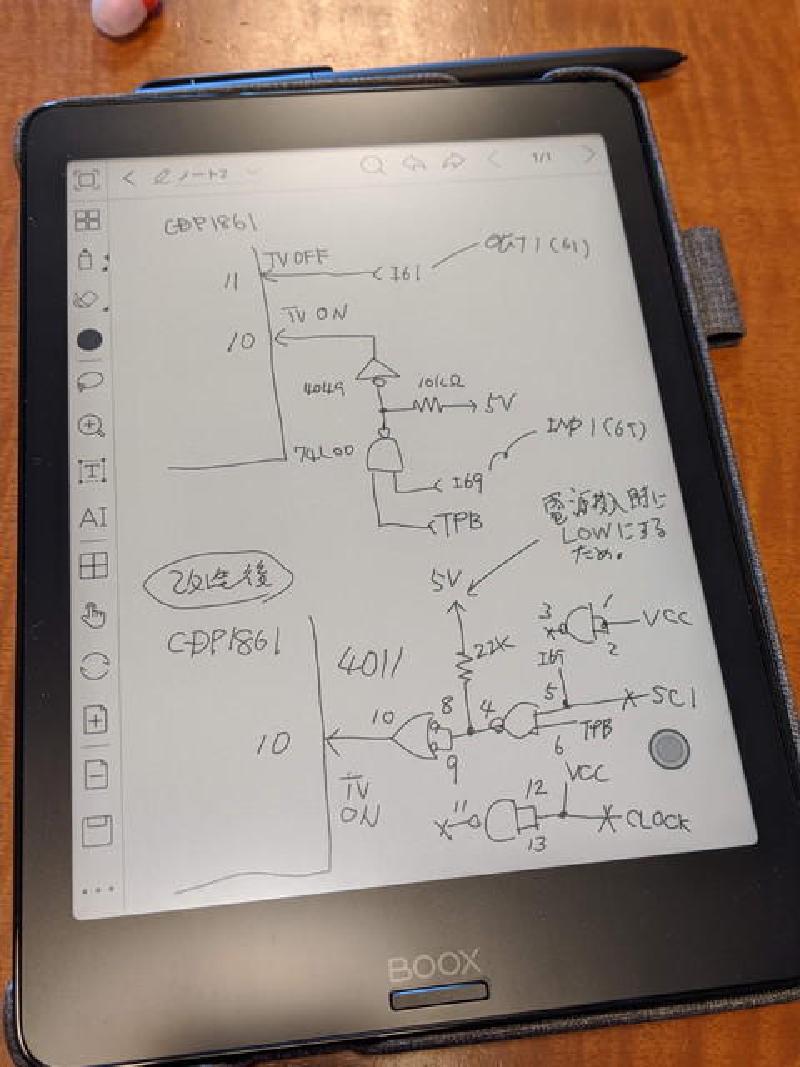 ノート2
1/1
CDP1861
TV OFF
11
I61
OUT1(61)
TV ON
10
4049
10kΩ
5V
74L00
I69
INP1(69)
TPB
電源投入時に
LOWにする
ため。
改造後
5V
CDP1861
4011
22K
3
1
VCC
2
I69
10
8
4
5
SC1
10
9
6
TPB
TV
ON
VCC
11
12
CLOCK
13
AI
BOOX